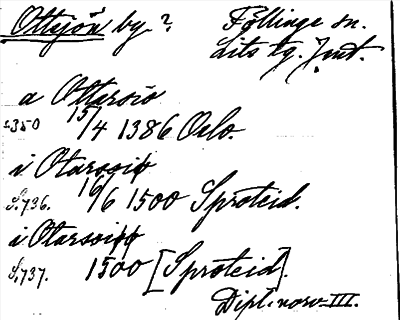 Ottsjön by ? Föllinge sn.
Lits tg. Jmt.
a Ottersio
s. 350 15/4 1386 Oslo.
i Otarssiø
S. 736. 16/6 1500 Sproteid.
i Otarsoiøø
S. 737. 1500 [Sproteid].
Dipl. norv. III.